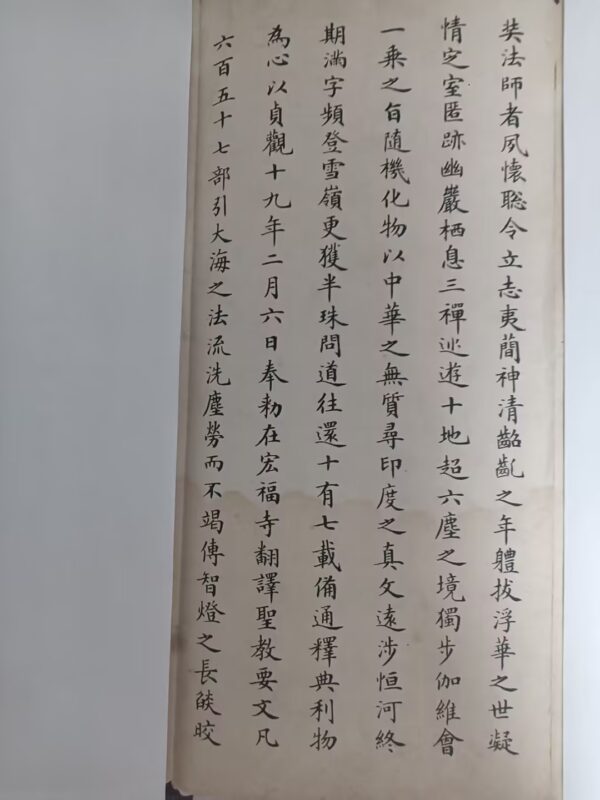 奘法師者夙懷聡令立志夷蕳神清齠齔之年軆拔浮華之世凝
情定室匿跡幽巖栖息三禪巡遊十地超六塵之境獨步伽維會
一乘之旨随機化物以中華之無質尋印度之真文遠涉恒河終
期滿字頻登雪嶺更獲半珠問道往還十有七載備通釋典利物
為心以貞觀十九年二月六日奉勑在宏福寺翻譯聖教要文凡
六百五十七部引大海之法流洗塵勞而不竭傳智燈之長燄皎